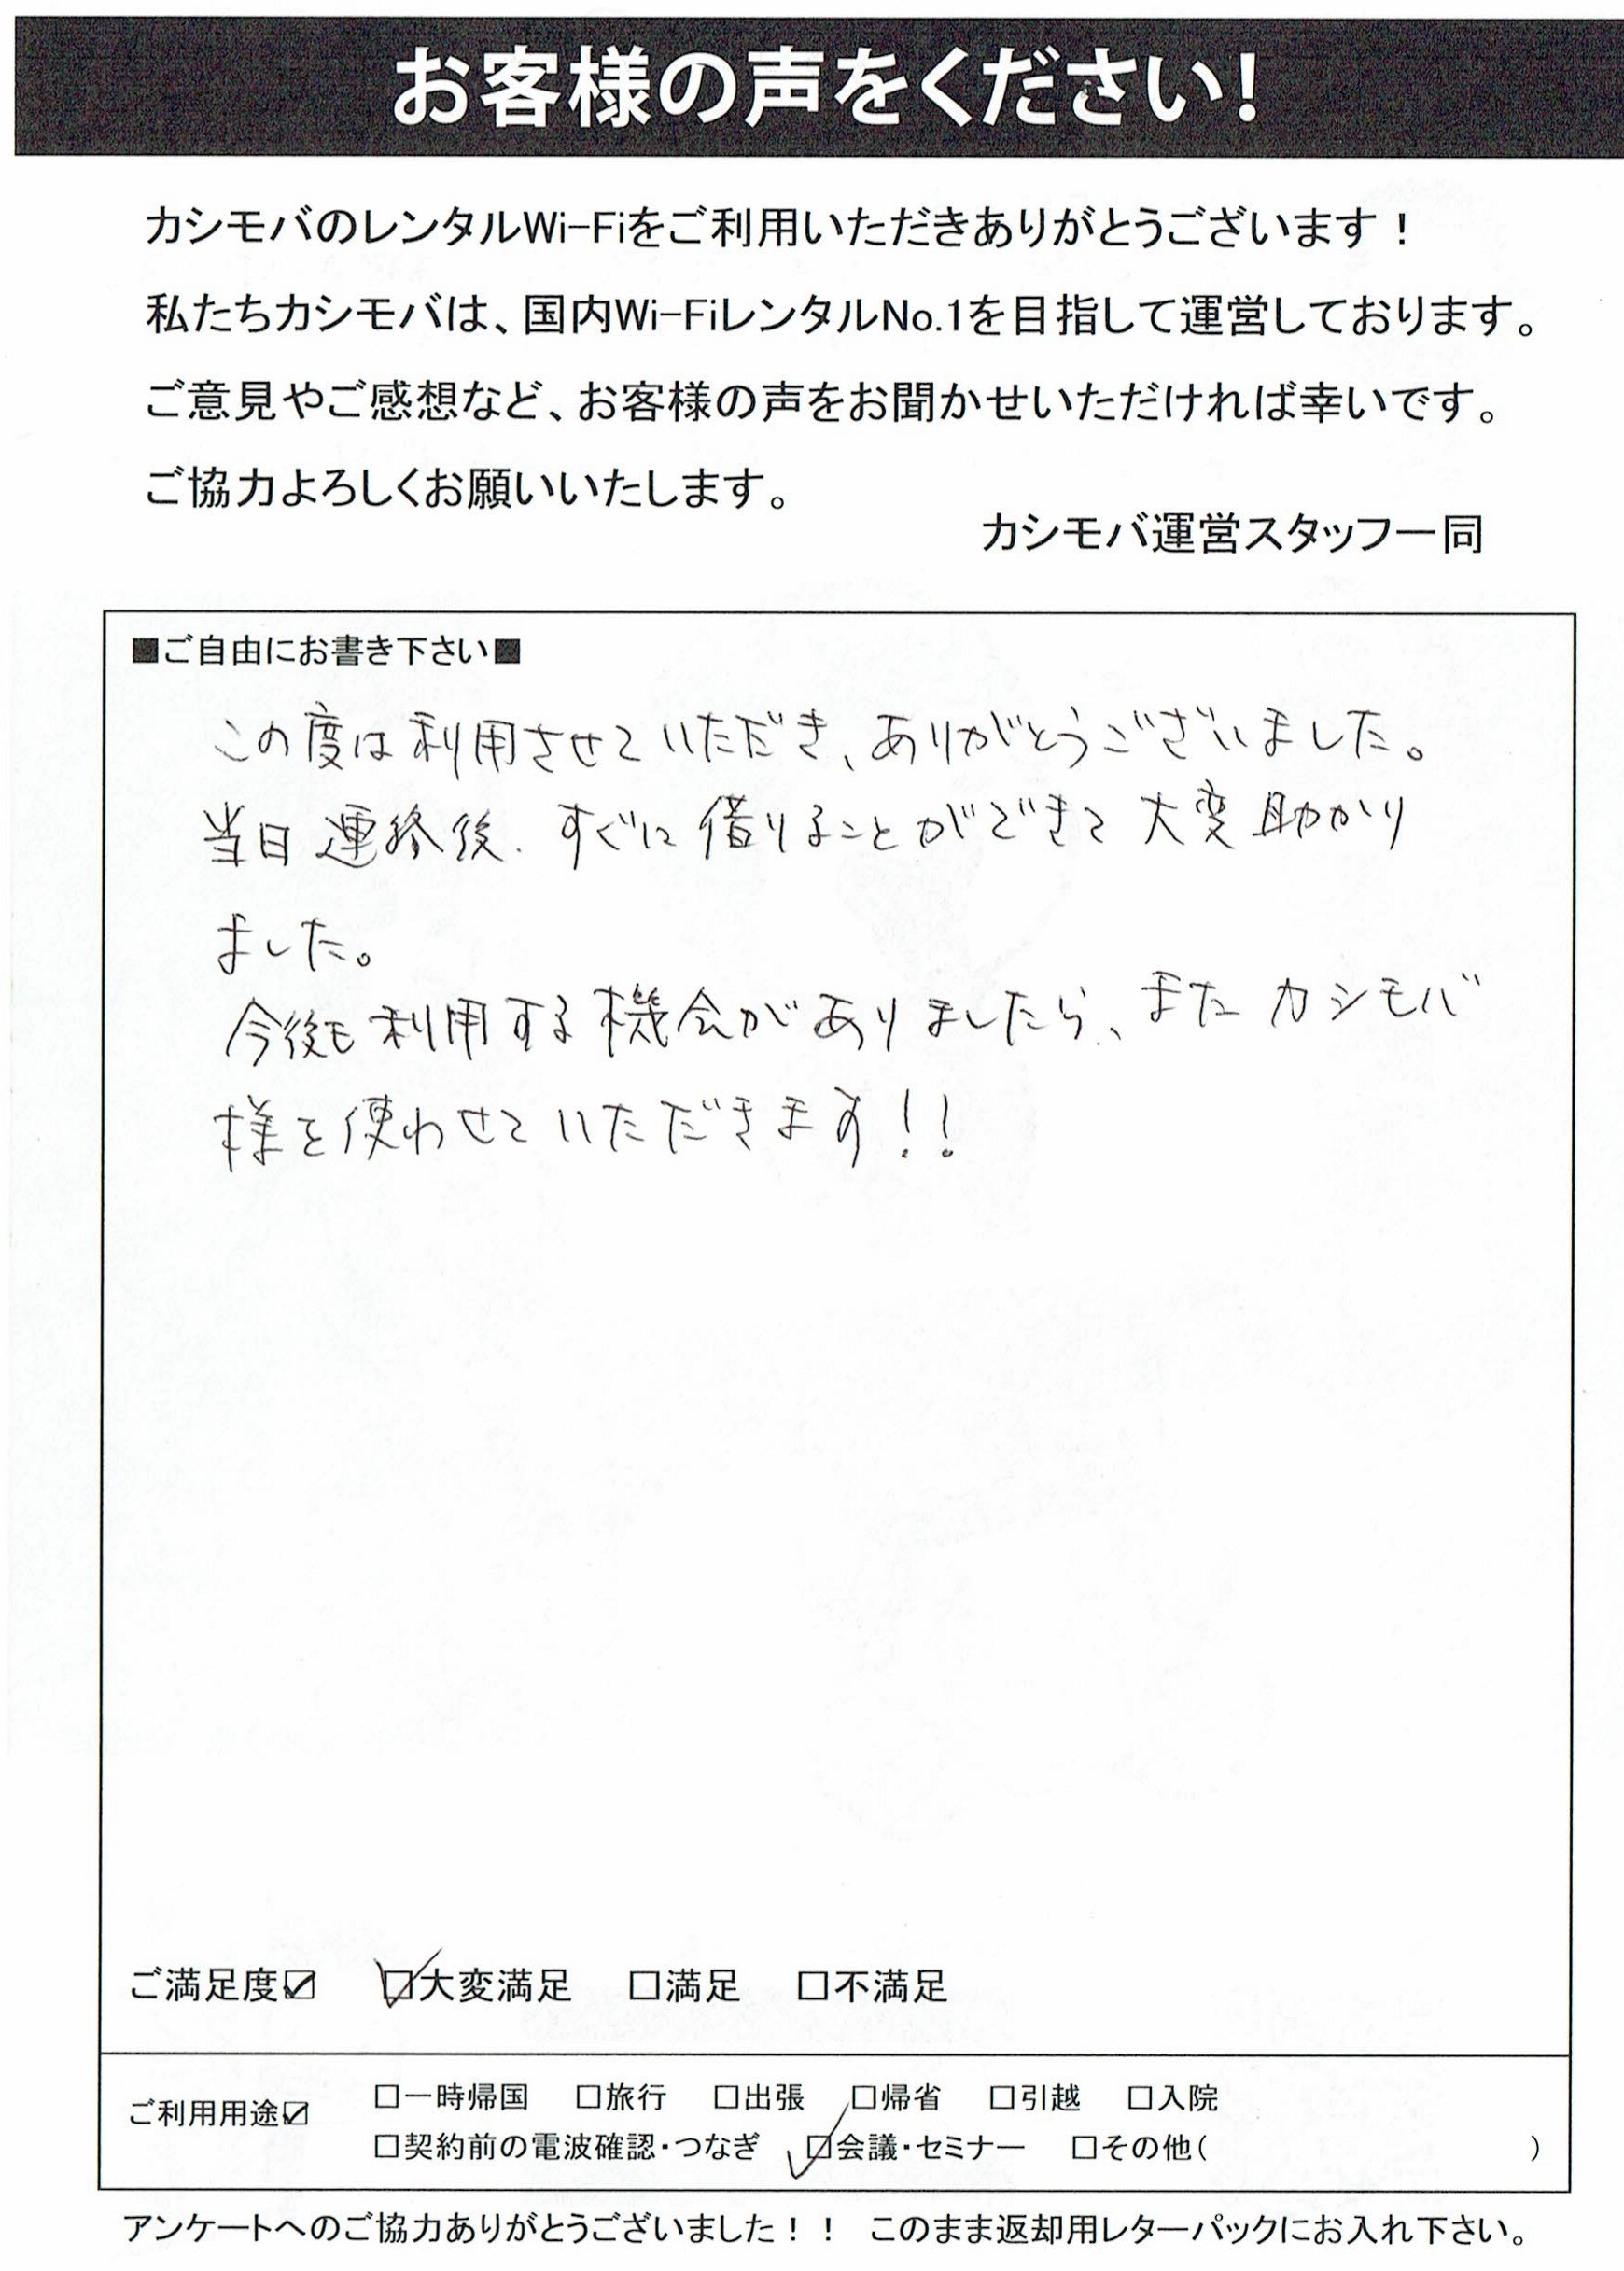 お客様の声をください!
カシモバのレンタルWi-Fiをご利用いただきありがとうございます！
私たちカシモバは、国内Wi-FiレンタルNo.1を目指して運営しております。
ご意見やご感想など、お客様の声をお聞かせいただければ幸いです。
ご協力よろしくお願いいたします。
カシモバ運営スタッフ一同
■ご自由にお書き下さい■
この度は利用させていただき、ありがとうございました。
当日連絡後、すぐに借りることができて大変助かり
ました。
今後も利用する機会がありましたら、またカシモバ
様を使わせていただきます!!
ご満足度☑ ☑大変満足 □満足 □不満足
ご利用用途☑ □一時帰国 □旅行 □出張 □帰省 □引越 □入院
□契約前の電波確認・つなぎ ☑会議・セミナー □その他( )
アンケートへのご協力ありがとうございました！！ このまま返却用レターパックにお入れ下さい。